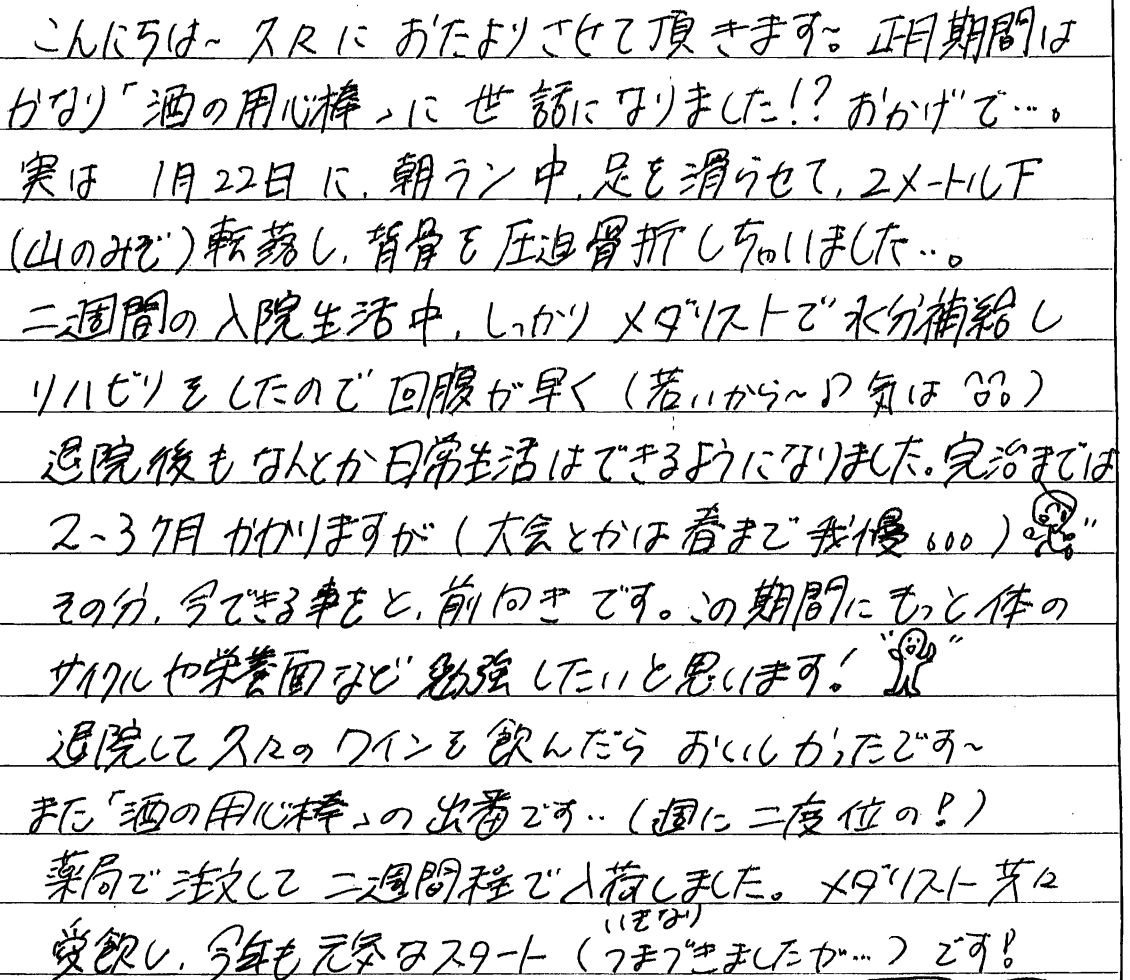 こんにちは~ 久々に おたよりさせて頂きます~。正月期間は
かなり「酒の用心棒」に世話になりました!? おかげで…。
実は 1月22日に、朝ラン中、足を滑らせて、2メートル下
(山のみぞ)転落し、背骨を圧迫骨折しちゃいました…。
二週間の入院生活中、しっかりメダリストで水分補給し
リハビリをしたので回腹が早く(若いから~♪気は
退院後もなんとか日常生活はできるようになりました。完治までは
2~3ヶ月かかりますが(大会とかは春まで我慢。。。)
その分、今できる事をと、前向きです。この期間にもっと体の
サイクルや栄養面など勉強したいと思います!
退院して久々のワインを飲んだらおいしかったです~
また「酒の用心棒」の出番です‥(週に二度位の!)
薬局で注文して二週間程で入荷しました。メダリスト
いきなり
愛飲し、今年も元気なスタート(つまづきましたが…)です!